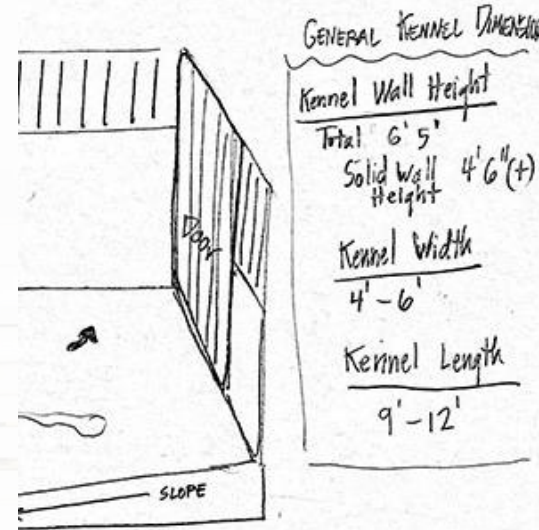 GENERAL KENNEL DIMENSIONS
Kennel Wall Height
Total 6' 5"
Solid Wall 4' 6" (+)
Height
Door
Kennel Width
4' - 6'
Kennel Length
9' - 12'
SLOPE